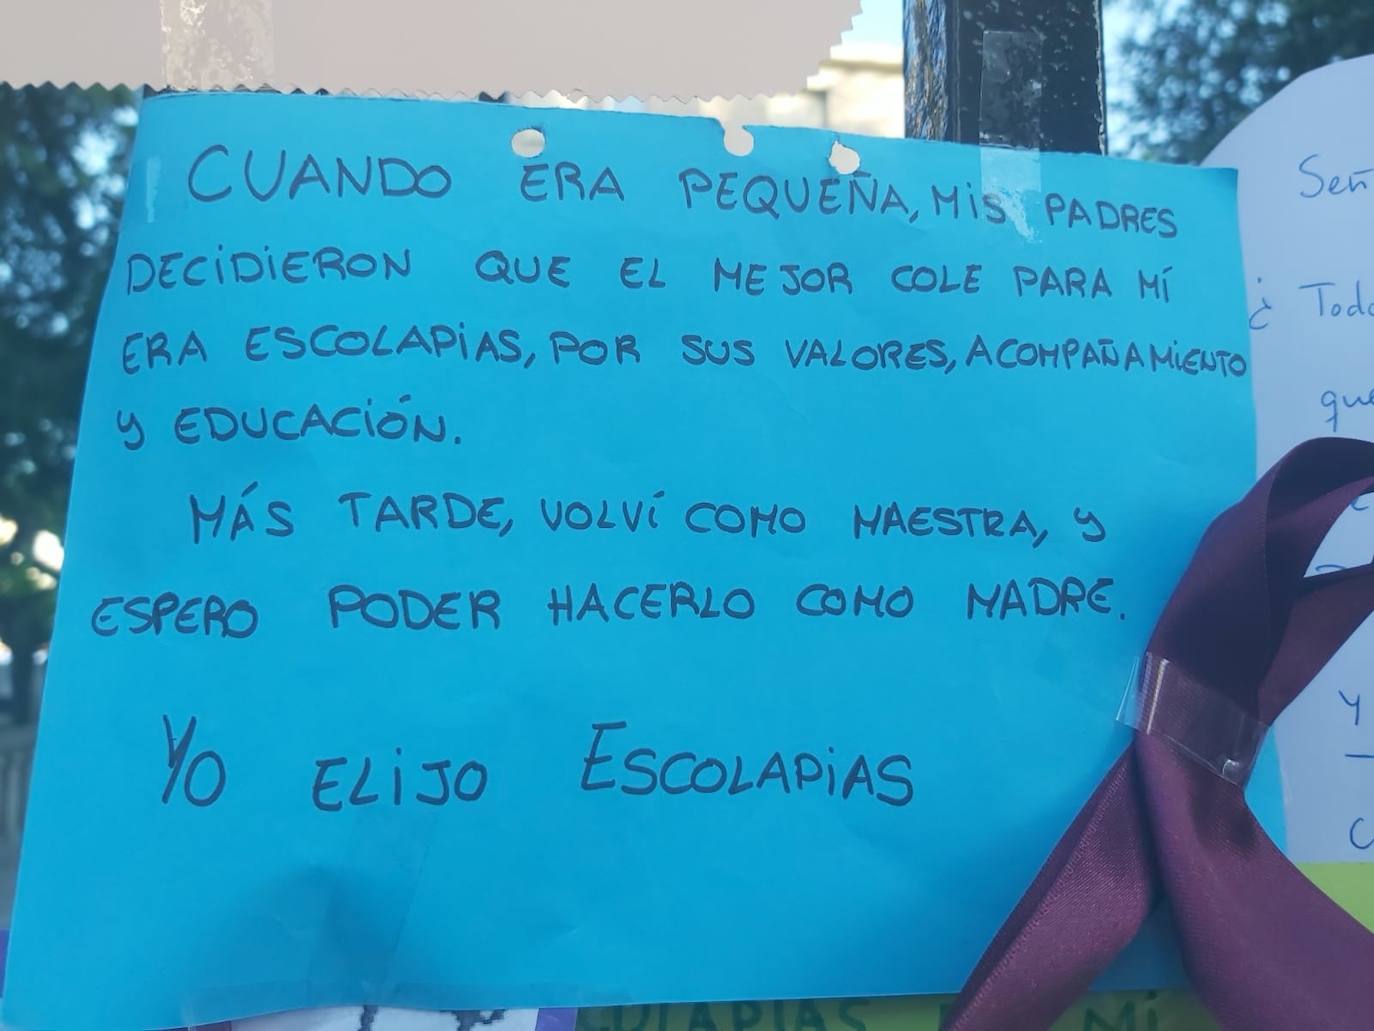 CUANDO ERA PEQUEÑA, MIS PADRES
DECIDIERON QUE EL MEJOR COLE PARA MÍ
ERA ESCOLAPIAS, POR SUS VALORES, ACOMPAÑAMIENTO
Y EDUCACIÓN.
MÁS TARDE, VOLVÍ COMO MAESTRA, Y
ESPERO PODER HACERLO COMO MADRE.
YO ELIJO ESCOLAPIAS
Señ
¿ Todo
que
Y
C
MÍ